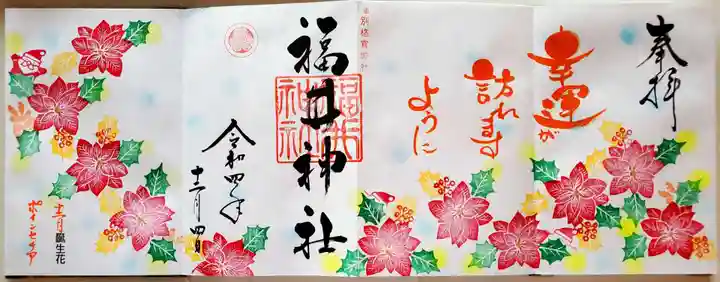 奉拝
幸運が
訪れます
ように
別格官幣社
福井神社
福井
神社
令和四年
十二月四日
十二月誕生花
ポインセチア